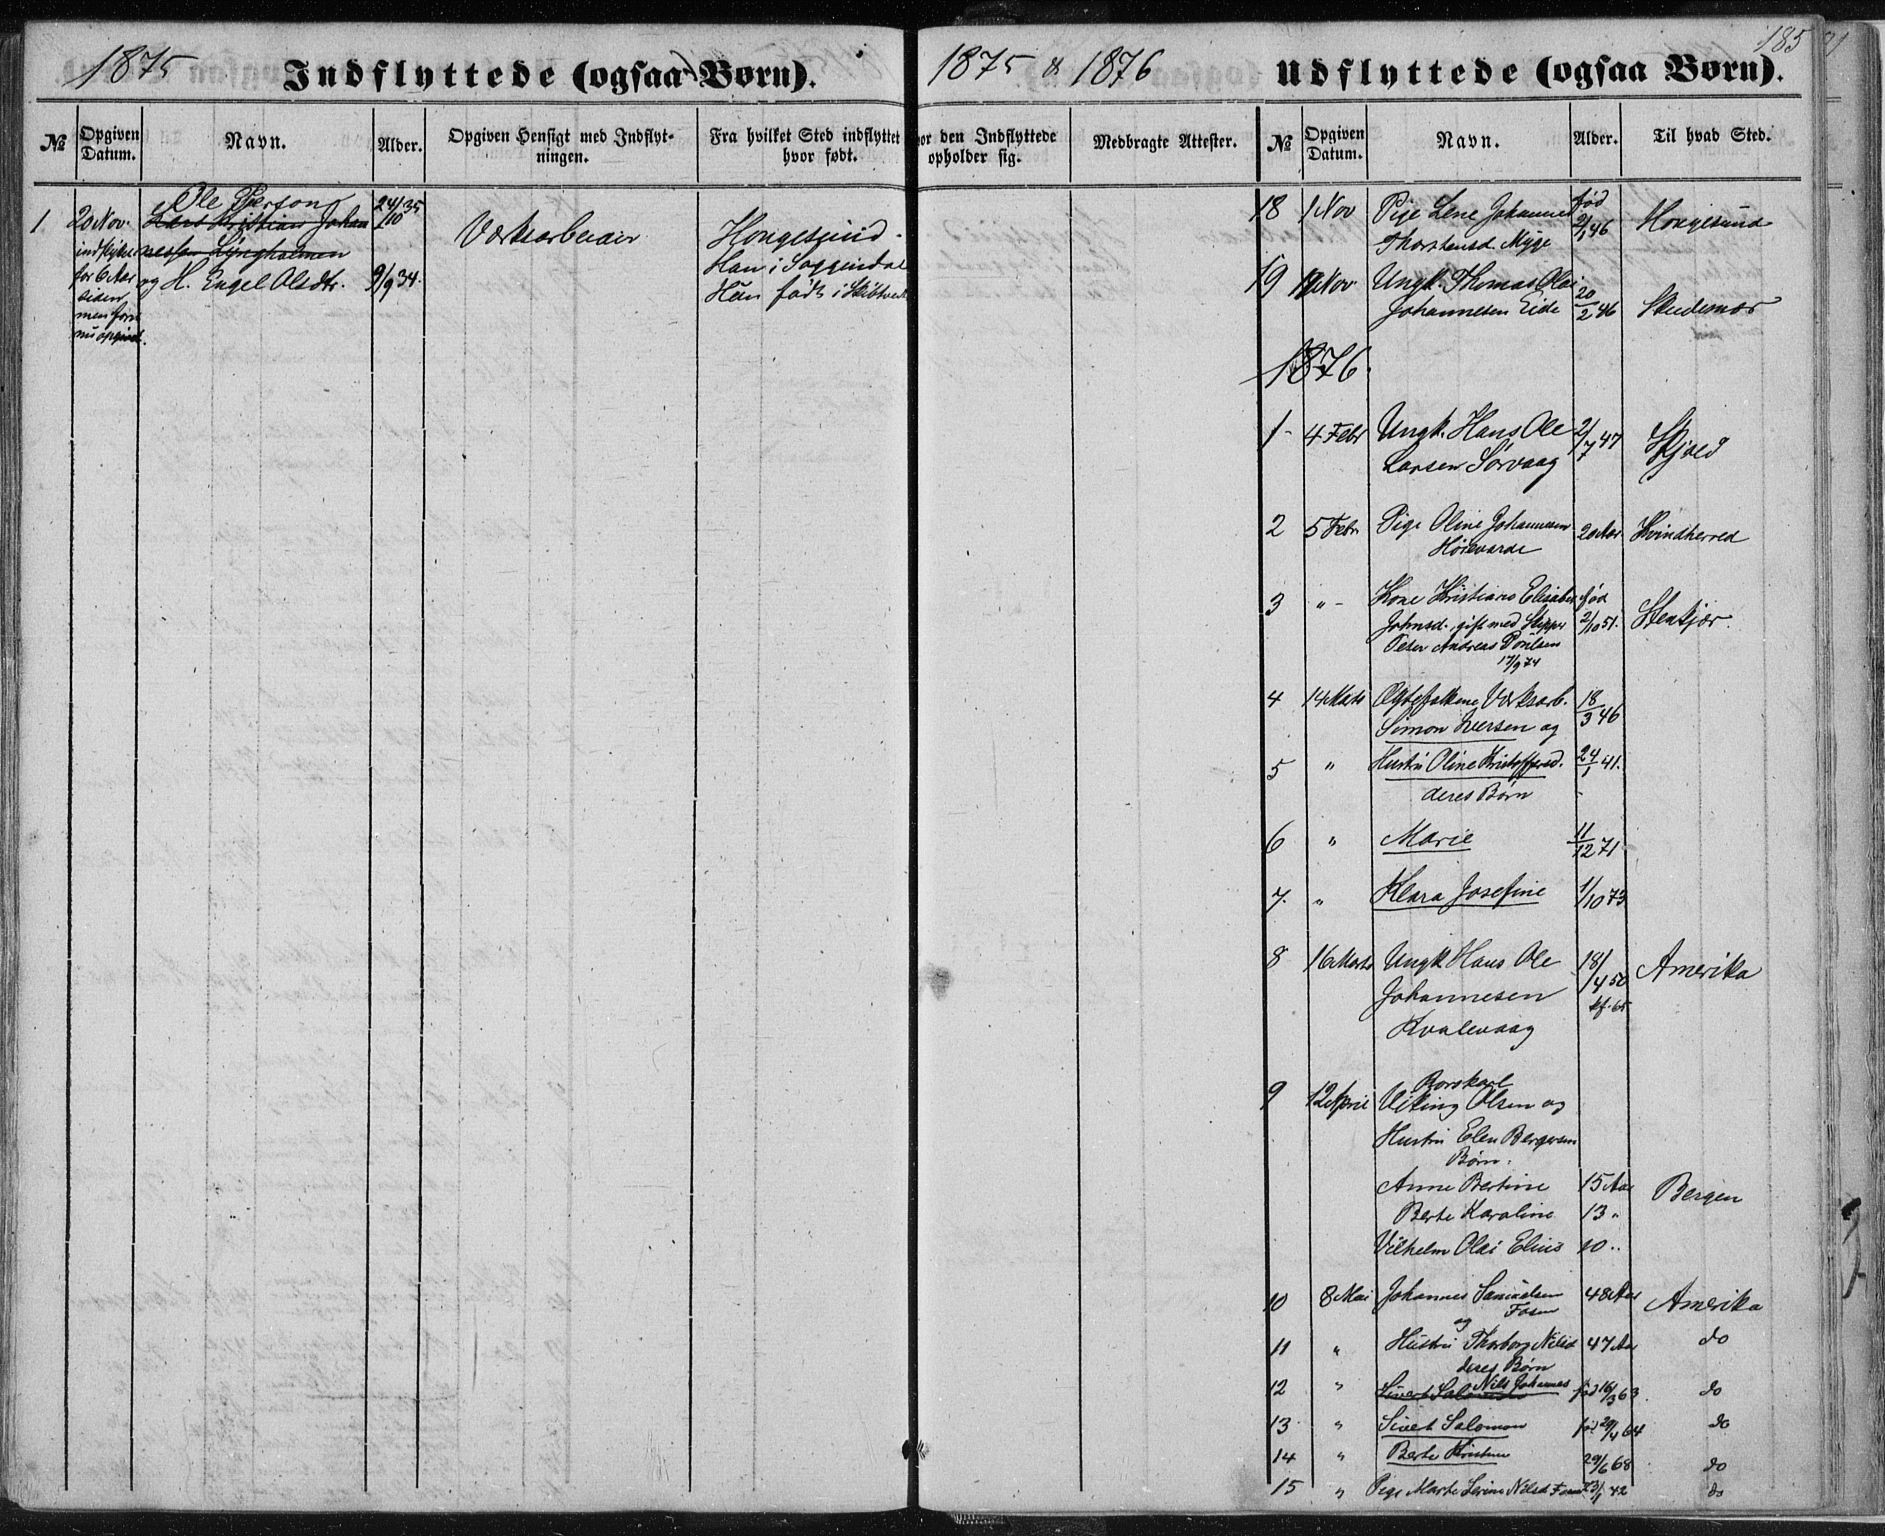 1875
Indflyttede (ogsaa Børn).
№
Opgiven Datum.
Navn.
Alder.
Opgiven Hensigt med Indflyt-
ningen.
Fra hvilket Sted indflyttet
hvor født.
1
20 Nov.
for 6 Aar
siden
men først
Ole Person
Lars Kristian Johan
nessen Lyngholmen
og H. Engel Olsdtr.
24/10 35
9/9 34.
Værksarbeider
Hougesund.
Han i Soggendal
Hun født i Skibtvedt
1875 & 1876
185
Udflyttede (ogsaa Børn).
hvor den Indflyttede
opholder sig.
Medbragte Attester.
№
Opgiven Datum.
Navn.
Alder.
Til hvad Sted.
18 1 Nov Pige Lene Johannes fød 2/1 46 Hougesund
Thorstensd. Myge
19 Nov. Ungk. Thomas Olai 20/2 46 Skudesnæs
Johannesen Eide
1876.
1 - 4 Febr Ungk. Hans Ole 2/7 47 Skjold
Larsen Sørvaag
2 5 Febr. Pige Oline Johannesen 20 Aar. Kvindherred
Høievarde
3 " - Kone Kristiane Elisabet fød 2/10 51. Stenkjær.
Johnsd., gift med Skipper
Peter Andreas Poulsen
17/9 74
4 14 Marts Ægtefolkene Værksarb. 18/3 46
Simon Iversen og
5 " Hustru Oline Kristoffersd. 24/1 41.
deres Børn
6 " Marie 11/12 71
7. " Klara Josefine 1/10 73
8 16 Marts Ungk Hans Ole 18/4 50 Amerika
Johannesen kf. 65
Kvalevaag
9 12 April Vilking Olsen og
Hustru Elen Bergersen
Børn:
Anne Bertine 15 Aar Bergen
Berte Karoline 13 "
Vilhelm Olai Elius 10 "
10 8 Mai Johannes Samuelsen 48 Aar Amerika
Fosen
og
11 " Hustru Thorborg Nilsd 47 Aar do
deres Børn
12 " Sivert Salomon Nils Johannes fød 16/3 63. do
13 " Sivert Salomon fød 29/4 64 do
14 " Berte Kristine 29/6 68 do
15 " Pige Marte Serine Nilsd Fosen 23/1 42 do